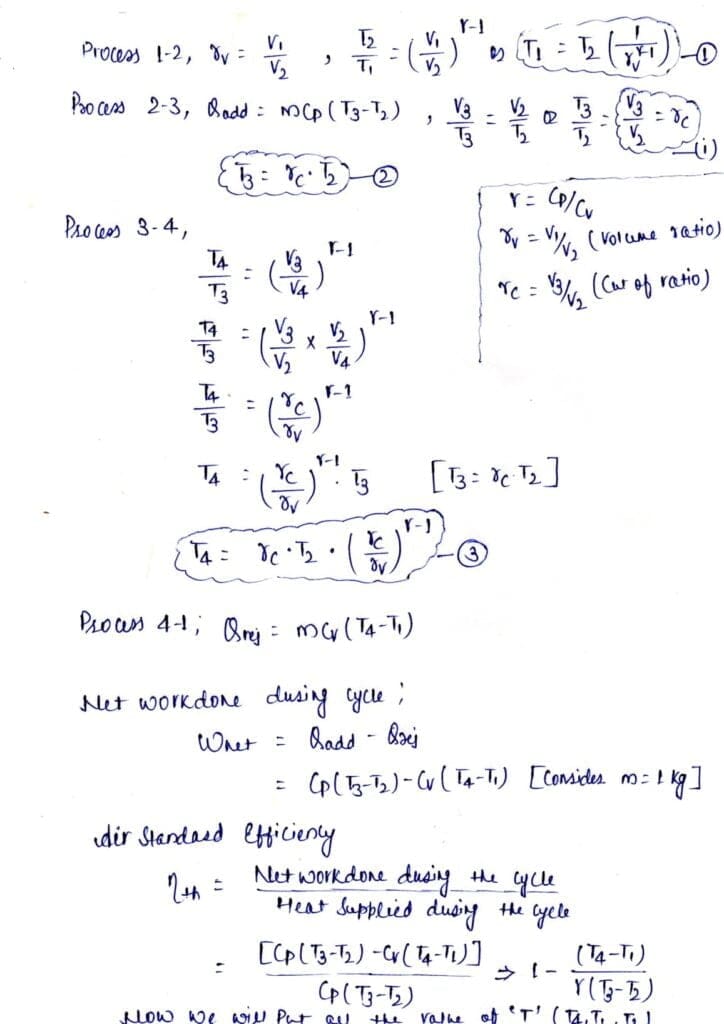 Process 1-2, rv = V1/V2 , T2/T1 = (V1/V2)^γ-1 ⇒ T1 = T2 (1/rv^γ-1) —①
Process 2-3, Qadd = mCp(T3-T2) , V3/T3 = V2/T2 or T3/T2 = V3/V2 = rc —(i)
T3 = rc · T2 —②
γ = Cp/Cv
rv = V1/V2 (Volume ratio)
rc = V3/V2 (Cut of ratio)
Process 3-4,
T4/T3 = (V3/V4)^γ-1
T4/T3 = (V3/V2 × V2/V4)^γ-1
T4/T3 = (rc/rv)^γ-1
T4 = (rc/rv)^γ-1 · T3 [T3 = rc · T2]
T4 = rc · T2 · (rc/rv)^γ-1 —③
Process 4-1; Qrej = mCv(T4-T1)
Net workdone during cycle ;
Wnet = Qadd - Qrej
= Cp(T3-T2) - Cv(T4-T1) [Consider m = 1 kg]
Air Standard Efficiency
ηth = Net workdone during the cycle / Heat Supplied during the cycle
= [Cp(T3-T2) - Cv(T4-T1)] / Cp(T3-T2) ⇒ 1 - (T4-T1) / γ(T3-T2)
Now we will Put all the value of 'T' (T4, T1, T3)